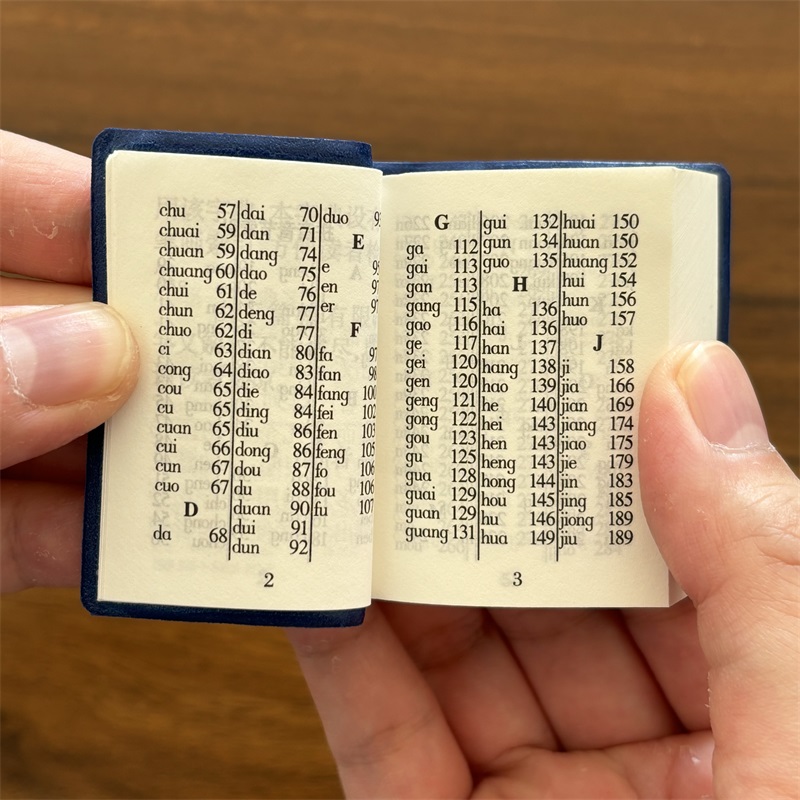 chu 57
chuai 59
chuan 59
chuang 60
chui 61
chun 62
chuo 62
ci 63
cong 64
cou 65
cu 65
cuan 65
cui 66
cun 67
cuo 67
D
da 68
dai 70
dan 71
dang 74
dao 75
de 76
deng 77
di 77
dian 80
diao 83
die 84
ding 84
diu 86
dong 86
dou 87
du 88
duan 90
dui 91
dun 92
duo
E
e
en
er
F
fa
fan
fang 100
fei 102
fen 103
feng 105
fo 106
fou 106
fu 107
2
G
ga 112
gai 113
gan 113
gang 115
gao 116
ge 117
gei 120
gen 120
geng 121
gong 122
gou 123
gu 125
gua 128
guai 129
guan 129
guang 131
gui 132
gun 134
guo 135
H
ha 136
hai 136
han 137
hang 138
hao 139
he 140
hei 143
hen 143
heng 143
hong 144
hou 145
hu 146
hua 149
huai 150
huan 150
huang 152
hui 154
hun 156
huo 157
J
ji 158
jia 166
jian 169
jiang 174
jiao 175
jie 179
jin 183
jing 185
jiong 189
jiu 189
3